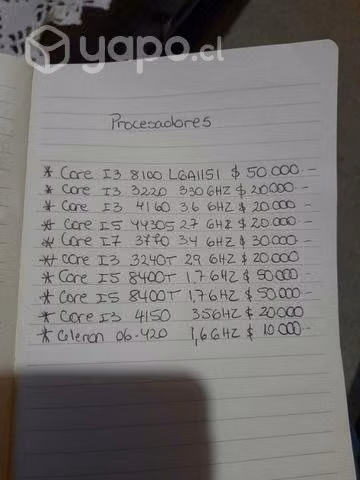 yapo.cl
Procesadores
* Core I3 8100 LGA1151 $ 50.000.-
* Core I3 3220 330GHZ $ 20.000.-
* Core I3 4160 36 GHZ $ 20.000.-
* Core I5 4430S 27 GHZ $ 20.000.-
* Core I7 3770 34 GHZ $ 30.000.-
* Core I3 3240T 29 GHZ $ 20.000
* Core I5 8400T 1,7GHZ $ 50.000.-
* Core I5 8400T 1,7GHZ $ 50.000.-
* Core I3 4150 35GHZ $ 20000
* Celeron 06-420 1,6GHZ $ 10.000.-